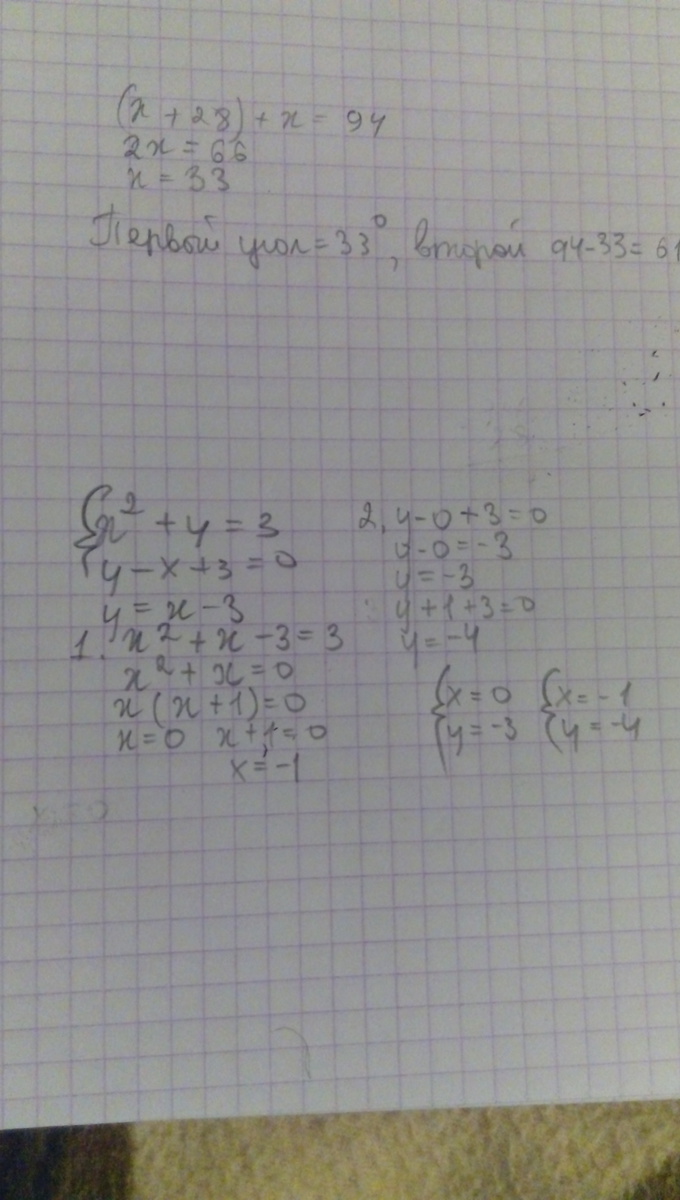 (x + 28) + x = 94
2x = 66
x = 33
Первый угол = 33°, второй 94-33=61
{x² + y = 3
{y - x + 3 = 0
y = x - 3
1. x² + x - 3 = 3
x² + x = 0
x (x + 1) = 0
x = 0 x + 1 = 0
x = -1
2. y - 0 + 3 = 0
y - 0 = -3
y = -3
y + 1 + 3 = 0
y = -4
{x = 0 {x = -1
{y = -3 {y = -4